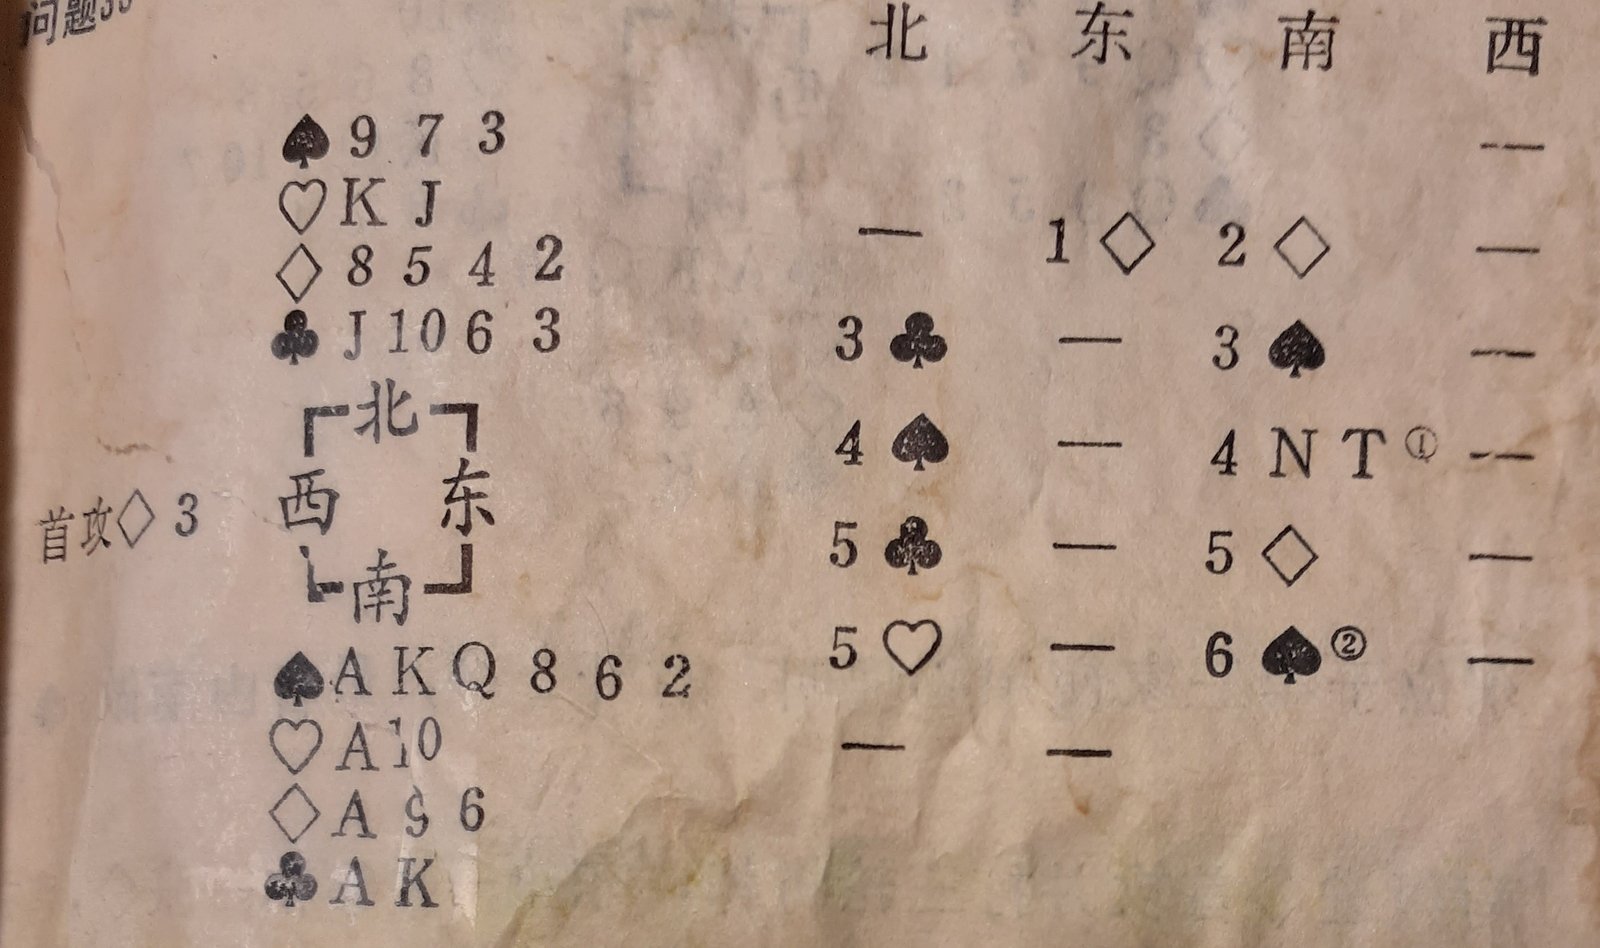 问题33
北 东 南 西
♠ 9 7 3
♡ K J
◇ 8 5 4 2
♣ J 10 6 3
北
西 东
南
首攻◇ 3
♠ A K Q 8 6 2
♡ A 10
◇ A 9 6
♣ A K
—
— 1◇ 2◇ —
3♣ — 3♠ —
4♠ — 4NT① —
5♣ — 5◇ —
5♡ — 6♠② —
— —